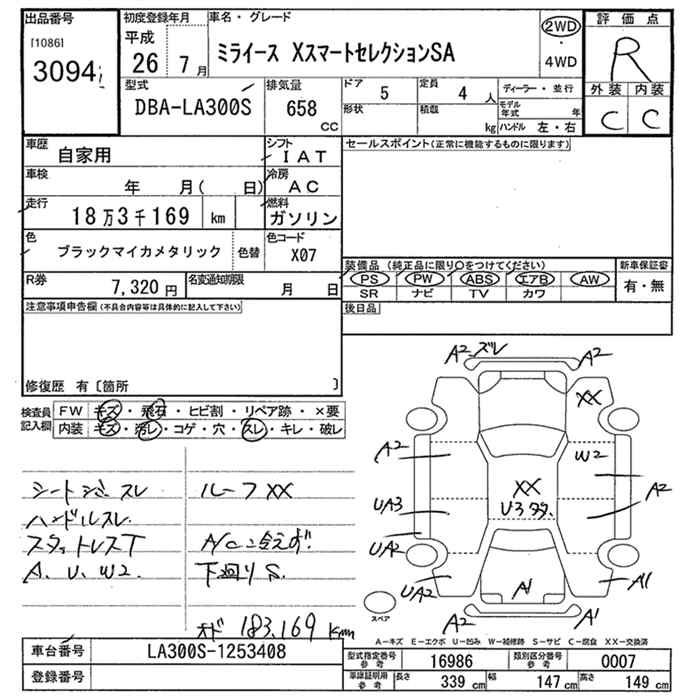 出品番号
[1086]
3094
初度登録年月
平成
26 7月
車名・グレード
ミライース XスマートセレクションSA
2WD
・
4WD
評価点
R
外装 内装
C C
型式
DBA-LA300S
排気量
658
CC
ドア 5
形状
定員 4 人
積載 kg
ディーラー・並行
モデル年式 年
ハンドル 左・右
車歴
自家用
シフト
IAT
車検
年 月( 日)
冷房
AC
走行
18万3千169 km
燃料
ガソリン
色
ブラックマイカメタリック
色替
色コード
X07
R券
7,320円
名変通知期限
月 日
セールスポイント(正常に機能するものに限ります)
装備品(純正品に限り○をつけてください)
PS PW ABS エアB AW
SR ナビ TV カワ
新車保証書
有・無
後日品
注意事項申告欄(不具合内容等は具体的に記入して下さい)
修復歴 有〔箇所 〕
検査員
記入欄
FW キズ・飛石・ヒビ割・リペア跡・×要
内装 キズ・汚レ・コゲ・穴・スレ・キレ・破レ
シートシミ スレ
ハンドルスレ
スタットレスT
A. U. W2.
ルーフXX
A/C冷えず.
下廻りS.
オド 183,169 Km
A2 ズレ A2
XX
A2
W2
UA3
XX
U3 タタ.
A2
UA2
UA2
A1
A1
A2
A1
スペア
A-キズ E-エクボ U-凹み W-補修跡 S-サビ C-腐食 XX-交換済
車台番号
LA300S-1253408
登録番号
型式指定番号
参考
16986
類別区分番号
参考
0007
車庫証明用
参考
長さ 339 cm
幅 147 cm
高さ 149 cm